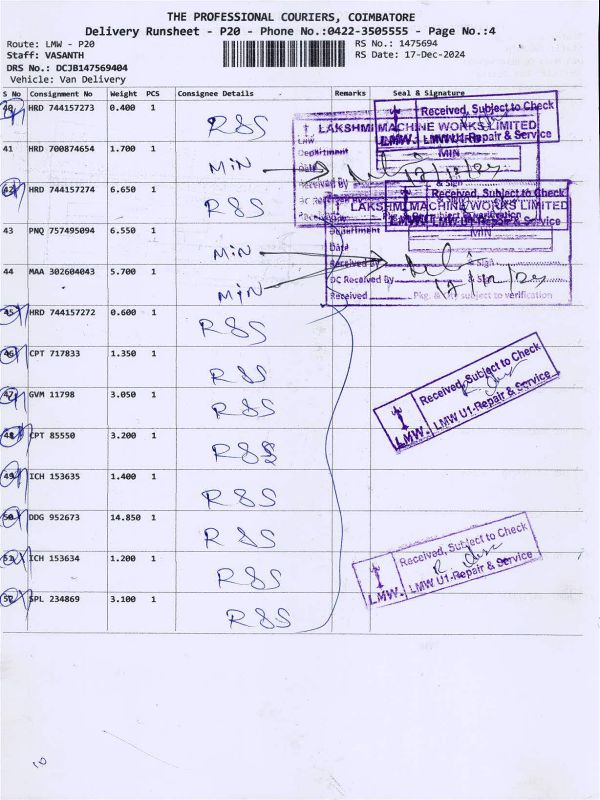 THE PROFESSIONAL COURIERS, COIMBATORE
Delivery Runsheet - P20 - Phone No.:0422-3505555 - Page No.:4
Route: LMW - P20
RS No.: 1475694
Staff: VASANTH
RS Date: 17-Dec-2024
DRS No.: DCJB147569404
Vehicle: Van Delivery
S No Consignment No Weight PCS Consignee Details Remarks Seal & Signature
40 HRD 744157273 0.400 1 R&S
Received, Subject to Check
LAKSHMI MACHINE WORKS LIMITED
LMW. LMW U1-Repair & Service
Department MIN
41 HRD 700874654 1.700 1 MIN
Date
17/12/24
Received By & Sign
42 HRD 744157274 6.650 1 R&S
Received, Subject to Check
LAKSHMI MACHINE WORKS LIMITED
LMW. LMW U1-Repair & Service
43 PNQ 757495094 6.550 1 MIN
Department MIN
Date
Received By & Sign
44 MAA 302604043 5.700 1 MIN
DC Received By & Sign
17/12/24
Received Pkg. & Qty subject to verification
45 HRD 744157272 0.600 1 R&S
46 CPT 717833 1.350 1 R&S
47 GVM 11798 3.050 1 R&S
Received, Subject to Check
LMW. LMW U1-Repair & Service
48 CPT 85550 3.200 1 R&S
49 ICH 153635 1.400 1 R&S
50 DDG 952673 14.850 1 R&S
51 ICH 153634 1.200 1 R&S
Received, Subject to Check
LMW. LMW U1-Repair & Service
52 SPL 234869 3.100 1 R&S
10